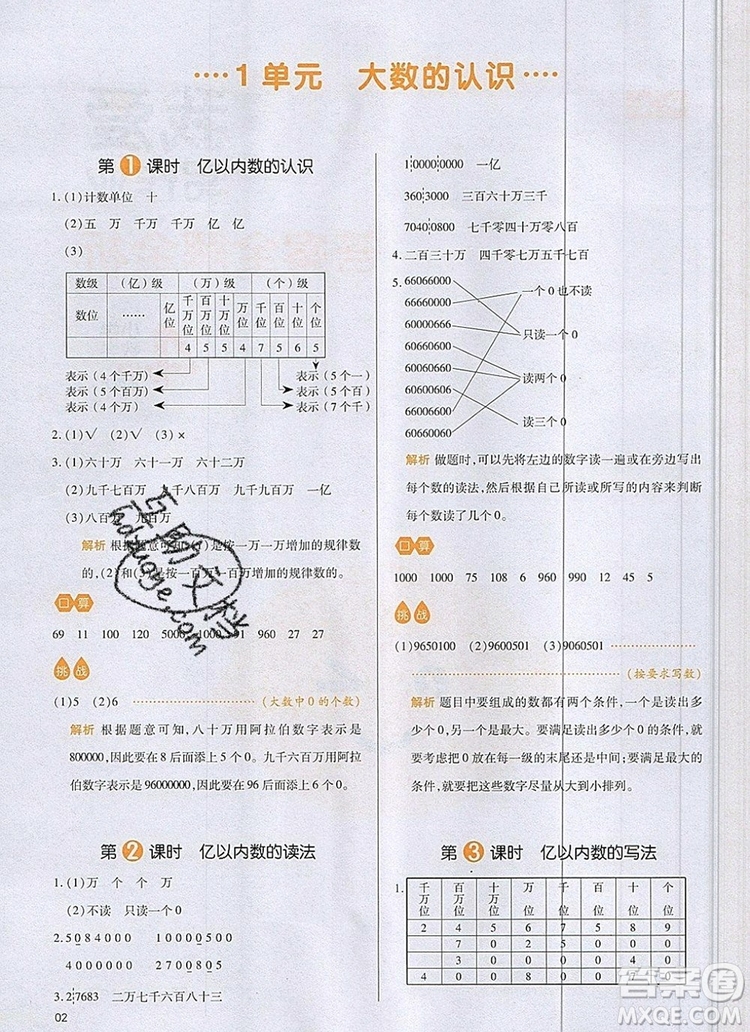 ····1 单元 大数的认识····
第1课时 亿以内数的认识
1. (1)计数单位 十
(2)五 万 千万 千万 亿 亿
(3)
数级 (亿)级 (万)级 (个)级
数位 …… 亿位 千万位 百万位 十万位 万位 千位 百位 十位 个位
4 5 5 4 7 5 6 5
表示(4个千万) 表示(5个一)
表示(5个百万) 表示(5个百)
表示(4个万) 表示(7个千)
2. (1)√ (2)√ (3)×
3. (1)六十万 六十一万 六十二万
(2)九千七百万 九千八百万 九千九百万 一亿
(3)八百万 九百万
解析 根据题意可知,(1)是按一万一万增加的规律数
的,(2)和(3)是按一百万一百万增加的规律数的。
口算
69 11 100 120 5000 1000 91 960 27 27
挑战
(1)5 (2)6 (大数中0的个数)
解析 根据题意可知,八十万用阿拉伯数字表示是
800000,因此要在8后面添上5个0。九千六百万用阿拉
伯数字表示是96000000,因此要在96后面添上6个0。
第2课时 亿以内数的读法
1. (1)万 个 个 万
(2)不读 只读一个0
2.5084000 50840000
4000000 40000000
3.2┊7683 二万七千六百八十三
02
1┊0000┊0000 一亿
360┊3000 三百六十万三千
7040┊0800 七千零四十万零八百
4. 二百三十万 四千零七万五千七百
5. 66066000
66660000 一个0也不读
60600666
66000066 只读一个0
60060060
60660000 读两个0
66006600
66060060 读三个0
解析 做题时,可以先将左边的数字读一遍或在旁边写出
每个数的读法,然后根据自己所读或所写的内容来判断
每个数读了几个0。
口算
1000 1000 75 108 6 960 990 12 45 5
挑战
(1)9650100 (2)9605001 (3)9060501
(按要求写数)
解析 题目中要组成的数都有两个条件,一个是读出多少
个0,另一个是最大。要满足读出多少个0这个条件,我
们主要考虑把0放在每一级的末尾还是中间;要满足最大
的条件,就要把这些数字尽量从大到小排列。
第3课时 亿以内数的写法
1. 千万位 百万位 十万位 万位 千位 百位 十位 个位
2 4 5 6 7 8 8 9
7 0 2 5 0 0
3 0 0 0 0
4 0 0 8 0 7 0 0
答案圈
MXQE.COM